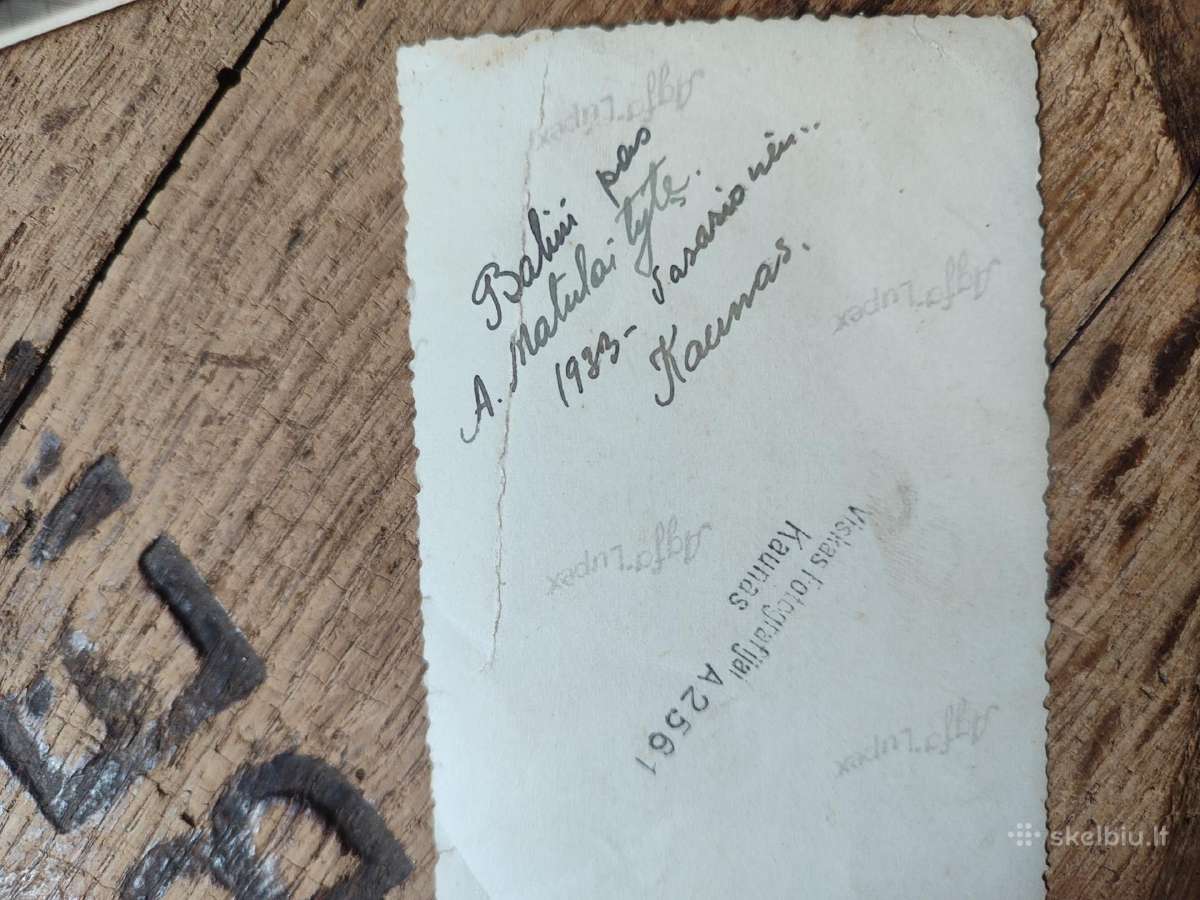 pas
A. Matulaitytę.
1933-
Kaunas.
Viskas Fotografijai A2561
Kaunas
Agfa-Lupex
Agfa-Lupex
Agfa-Lupex
Agfa-Lupex
skelbiu.lt